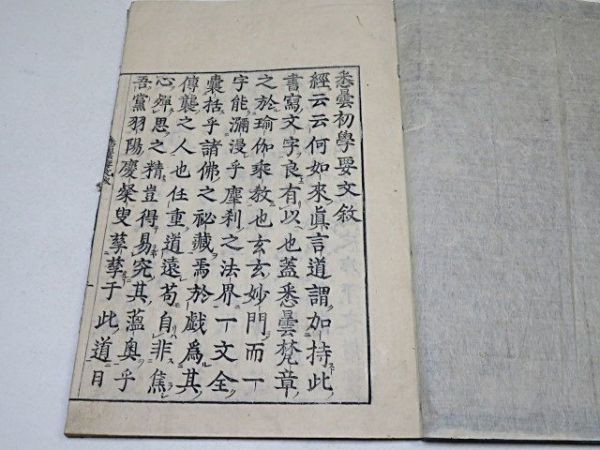 悉曇初學要文敘
經云云何如來眞言道謂加持此
書寫文字良有以也蓋悉曇梵章
之於瑜伽乘教也玄玄妙門而一
字能瀰漫乎塵刹之法界一文全
囊括乎諸佛之祕藏焉於戲爲其
傳襲之人也任重道遠苟自非焦
心殫思之精豈得易究其薀奧乎
吾黨羽陽慶粲叟孳孳于此道日